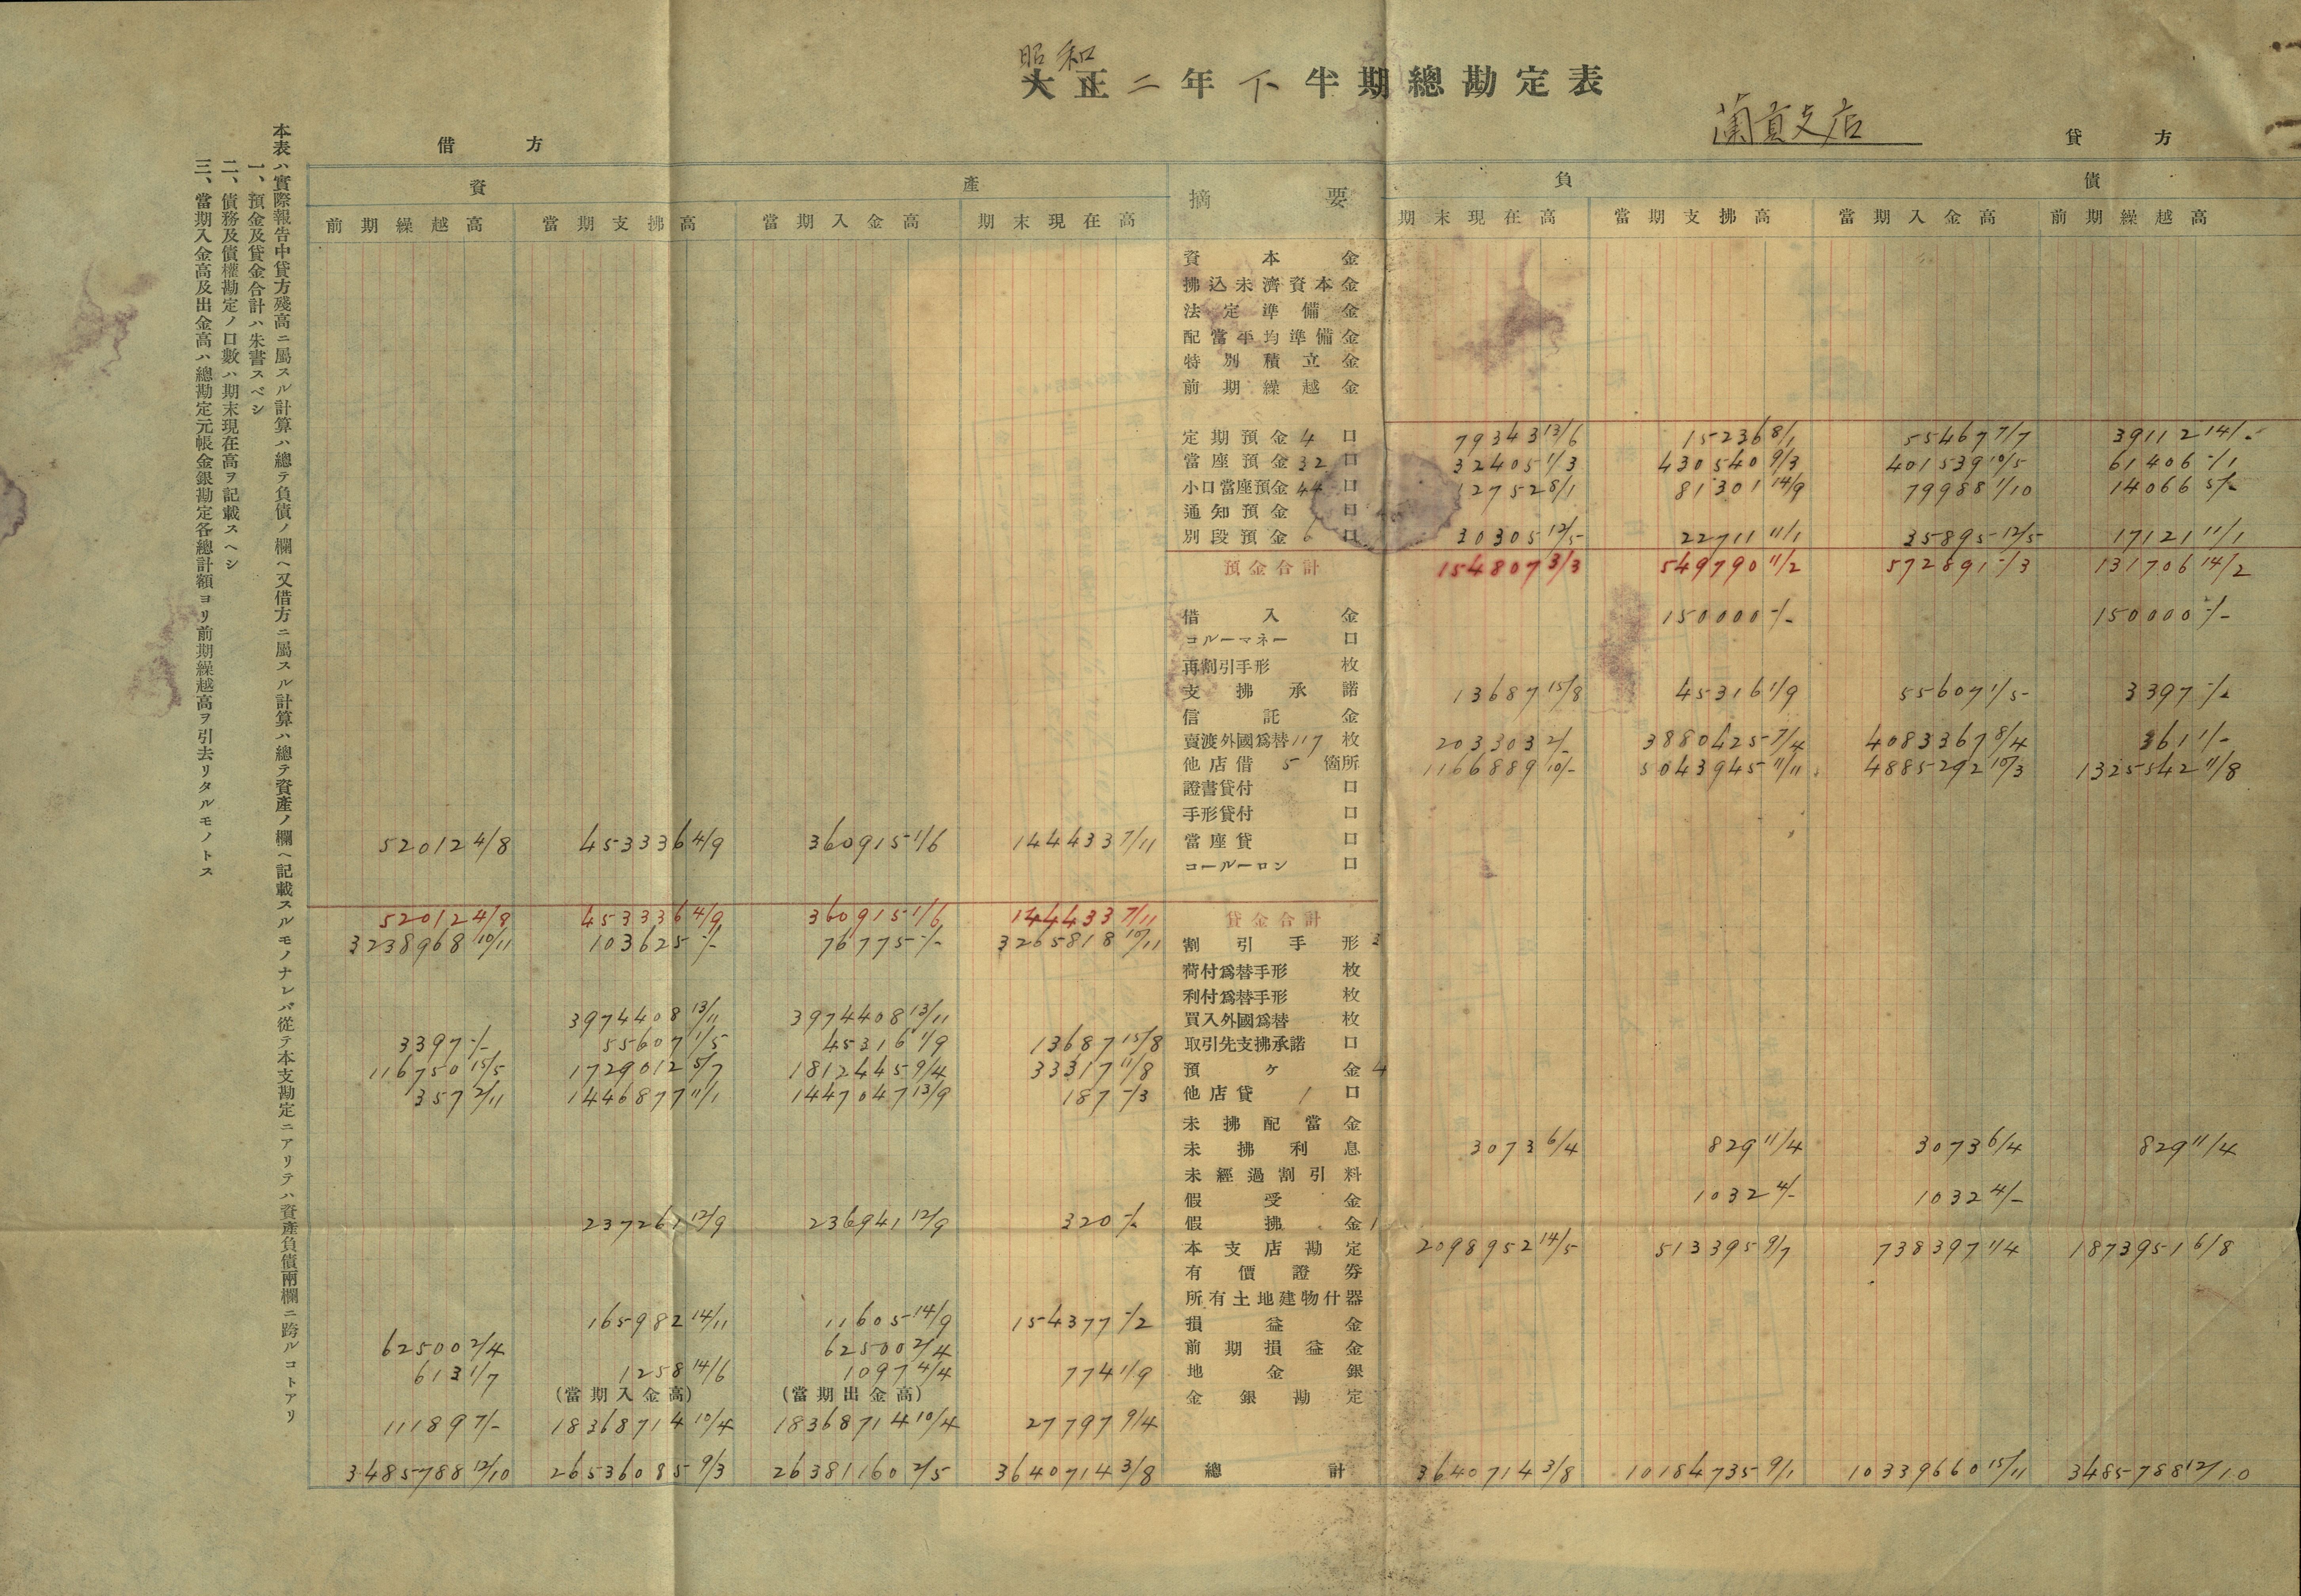 昭和
大正二年下半期總勘定表
蘭貢支店
借方
貸方
資產
摘要
負債
前期繰越高 當期支拂高 當期入金高 期末現在高 期末現在高 當期支拂高 當期入金高 前期繰越高
資本金
拂込未濟資本金
法定準備金
配當平均準備金
特別積立金
前期繰越金
定期預金 4 口 79343 13/6 15236 8/1 55467 7/7 39112 14/-
當座預金 32 口 32405 1/3 430540 9/3 401539 10/5 61406 -/1
小口當座預金 44 口 12752 8/1 81301 14/9 79988 1/10 14066 5/-
通知預金 口
別段預金 6 口 30305 12/5 22711 11/1 35895 12/5 17121 11/1
預金合計 154807 3/3 549790 11/2 572891 -/3 131706 14/2
借入金 150000 -/- 150000 -/-
コルーマネー 口
再割引手形 枚
支拂承諾 13687 15/8 45316 1/9 55607 1/5 3397 -/-
信託金
賣渡外國爲替 117 枚 203303 2/- 3880425 7/4 4083367 8/4 361 1/-
他店借 5 箇所 1166889 10/- 5043945 11/11 4885292 10/3 1325542 11/8
證書貸付 口
手形貸付 口
52012 4/8 453336 4/9 360915 1/6 144433 7/11 當座貸 口
コールーロン 口
52012 4/8 453336 4/9 360915 1/6 144433 7/11 貸金合計
3238968 10/11 103625 -/- 76775 -/- 3265818 10/11 割引手形 3
荷付爲替手形 枚
利付爲替手形 枚
3974408 13/11 3974408 13/11 買入外國爲替 枚
3397 -/- 55607 1/5 45316 1/9 13687 15/8 取引先支拂承諾 口
116750 15/5 1729012 5/7 1812445 9/4 33317 11/8 預ヶ金 4
357 2/11 1446877 11/1 1447047 13/9 187 -/3 他店貸 1 口
未拂配當金
未拂利息 3073 6/4 829 11/4 3073 6/4 829 11/4
未經過割引料
假受金 1032 4/- 1032 4/-
237261 12/9 236941 12/9 320 -/- 假拂金 1
本支店勘定 2098952 14/5 513395 9/7 738397 1/4 1873951 6/8
有價證券
所有土地建物什器
165982 14/11 11605 14/9 154377 -/2 損益金
62500 2/4 62500 2/4 前期損益金
613 1/7 1258 14/6 1097 4/4 774 11/9 地金銀
(當期入金高) (當期出金高) 金銀勘定
11189 7/- 18368714 10/4 18368714 10/4 27797 9/4
3485788 12/10 26536085 9/3 26381160 2/5 3640714 3/8 總計 3640714 3/8 10184735 9/1 10339660 15/11 3485788 12/10
本表ハ實際報告中貸方殘高ニ屬スル計算ハ總テ負債ノ欄ヘ又借方ニ屬スル計算ハ總テ資產ノ欄ヘ記載スルモノナレバ從テ本支勘定ニアリテハ資產負債兩欄ニ跨ルコトアリ
一、預金及貸金合計ハ朱書スベシ
二、債務及債權勘定ノ口數ハ期末現在高ヲ記載スヘシ
三、當期入金高及出金高ハ總勘定元帳金銀勘定各總計額ヨリ前期繰越高ヲ引去リタルモノトス